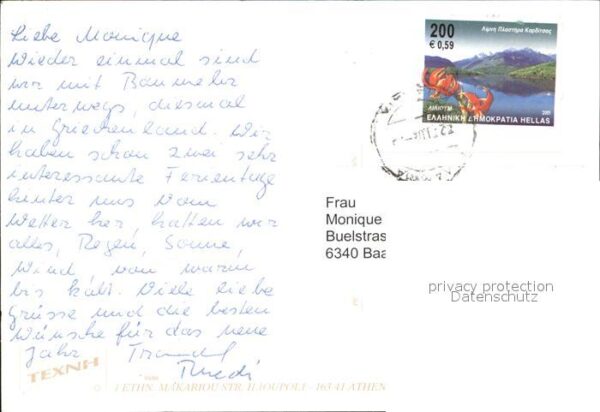 Liebe Monique
wieder einmal sind
wir mit Baumeler
unterwegs, diesmal
in Griechenland. Wir
haben schon zwei sehr
interessante Ferientage
hinter uns. Vom
Wetter her, hatten wir
alles, Regen, Sonne,
Wind, von warm
bis kalt. Viele liebe
Grüsse und die besten
Wünsche für das neue
Jahr Traudel
Ruedi
200
€ 0,59
Λίμνη Πλαστήρα Καρδίτσας
2001
ΕΛΛΗΝΙΚΗ ΔΗΜΟΚΡΑΤΙΑ HELLAS
Frau
Monique
Buelstras
6340 Baa
privacy protection
Datenschutz
TEXNH
MAKARIOU STR. ILIOUPOLI - 16341 ATHEN